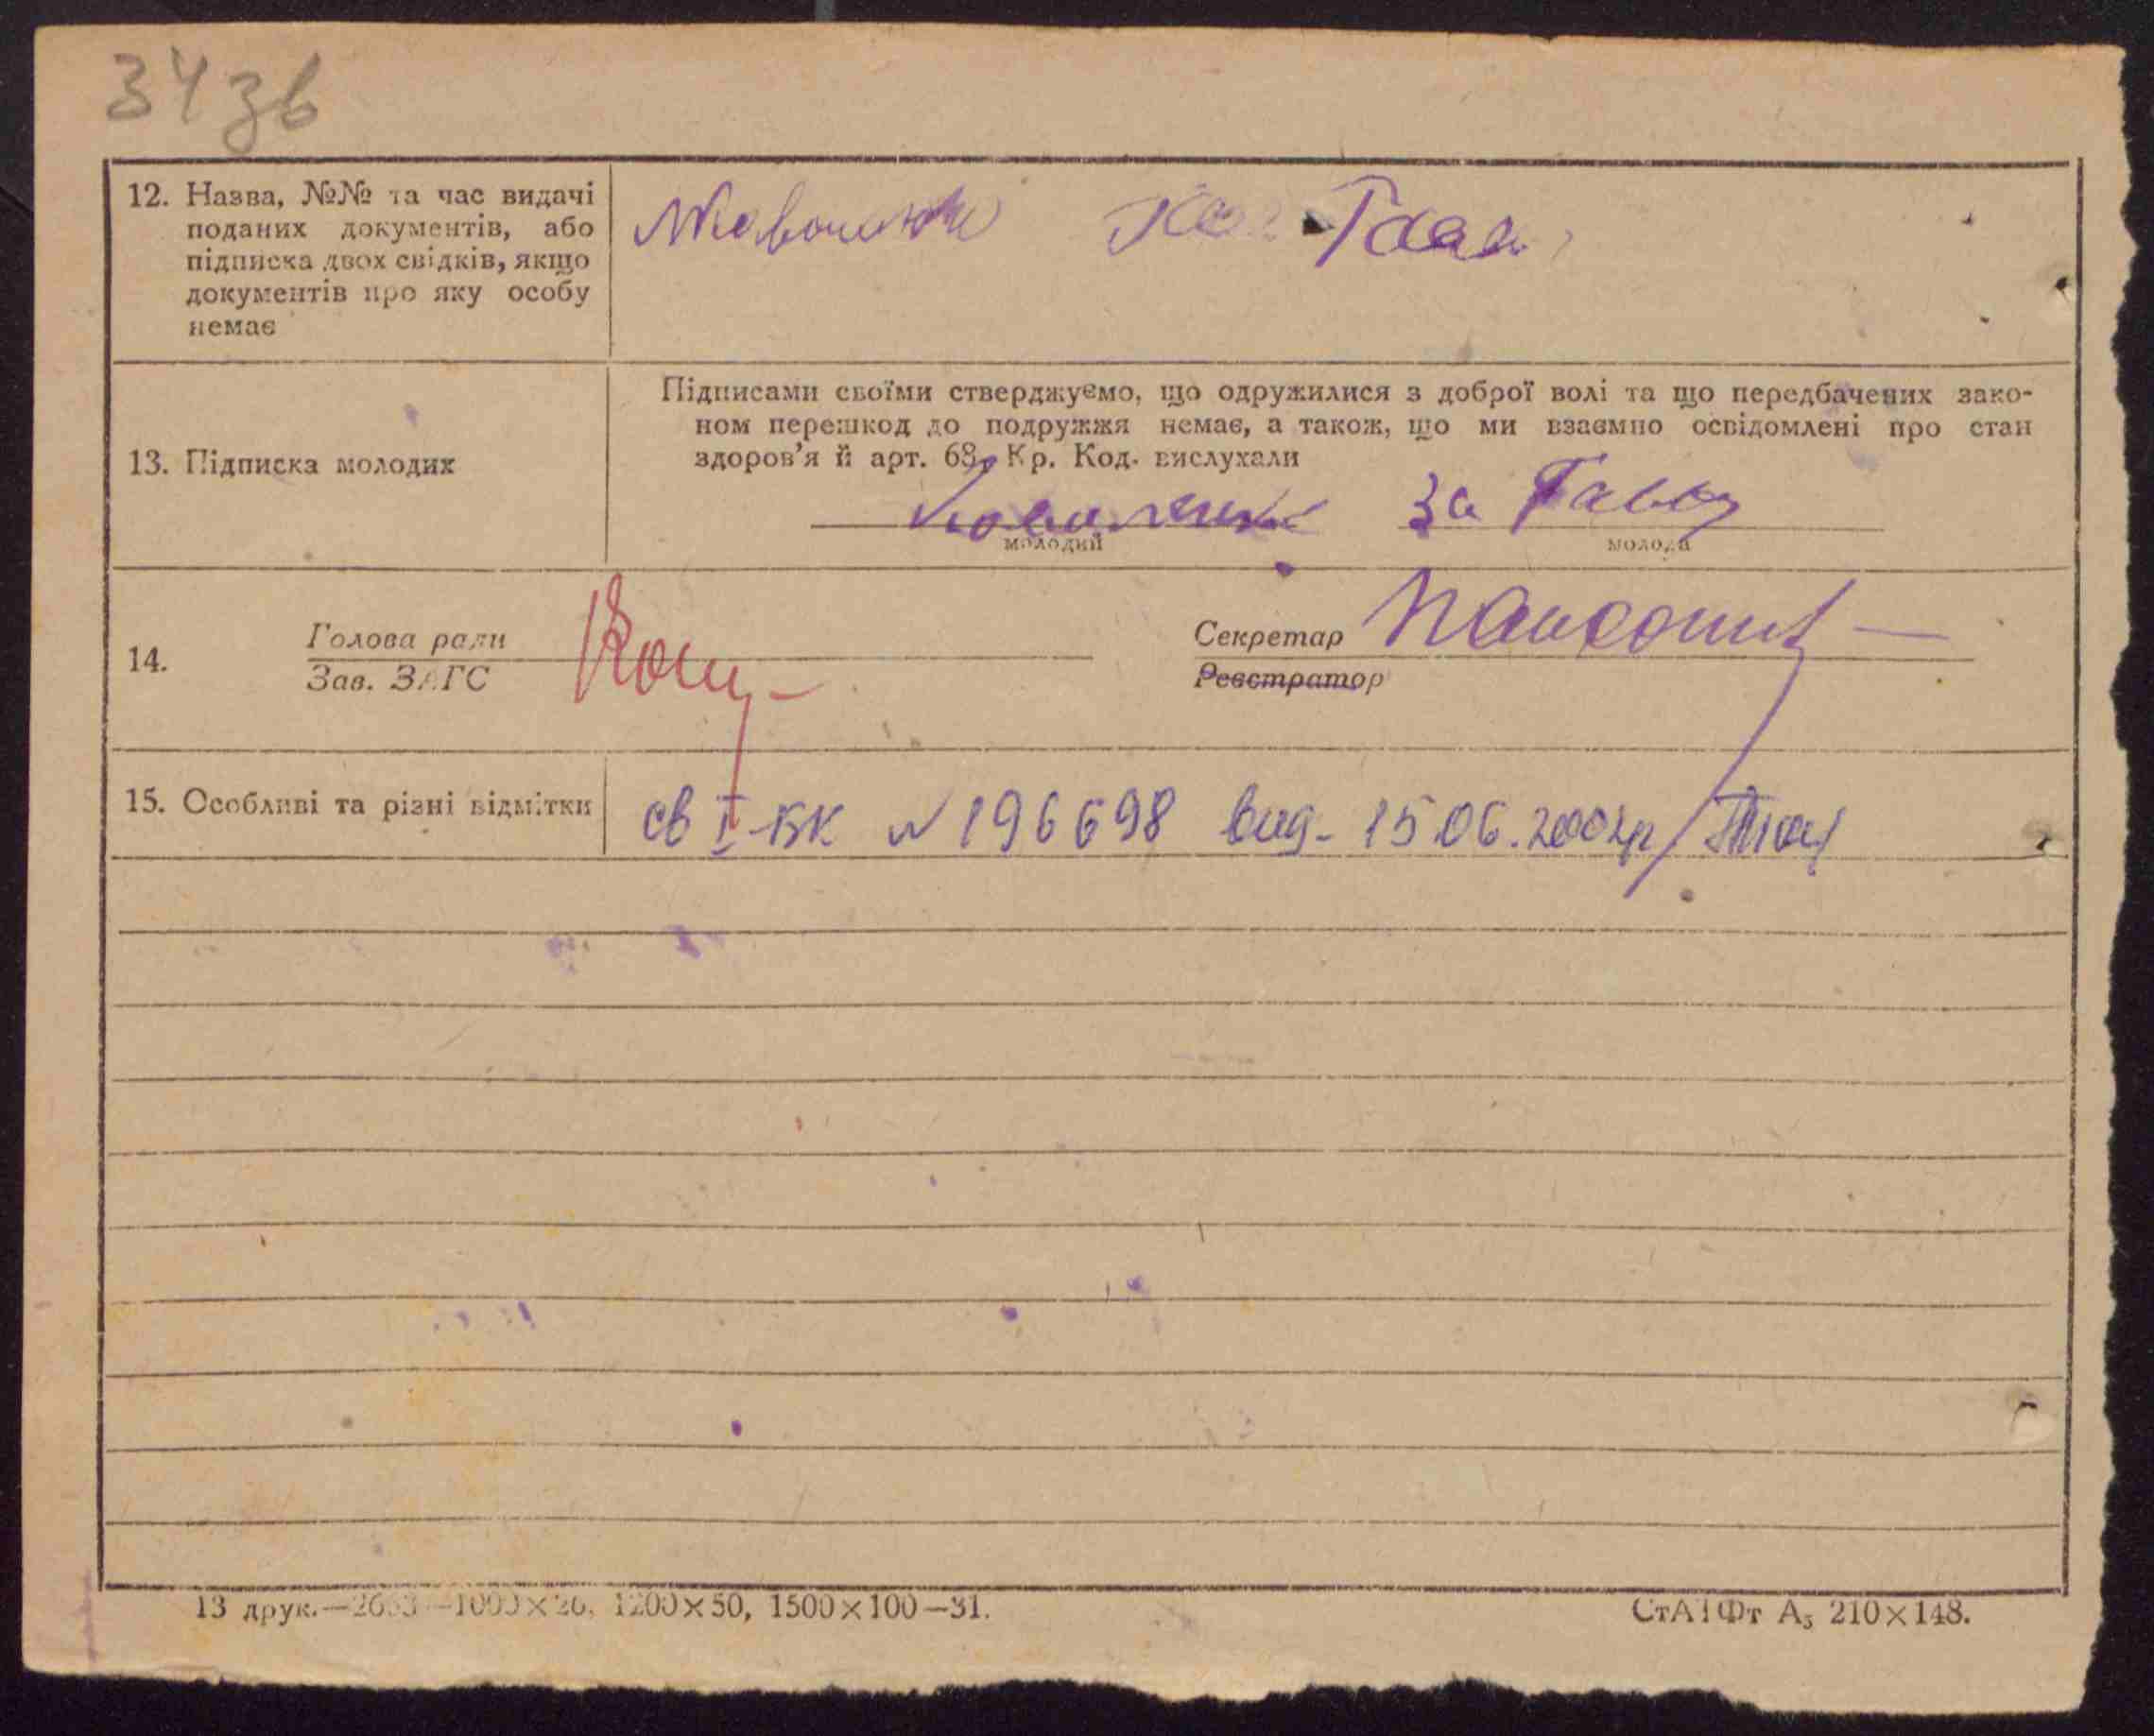 34 зв
12. Назва, №№ та час видачі
поданих документів, або
підписка двох свідків, якщо
документів про яку особу
немає
Підписами своїми стверджуємо, що одружилися з доброї волі та що передбачених зако-
ном перешкод до подружжя немає, а також, що ми взаємно освідомлені про стан
здоров'я й арт. 68, Кр. Код. вислухали
13. Підписка молодих
за
молодий
молода
14.
Голова ради
Зав. ЗАГС
Секретар
Реєстратор
15. Особливі та різні відмітки
св І-БК № 196698 вид- 15.06.2004р
13 друк.— 1200×50, 1500×100—31.
СтАТФт А₅ 210×148.